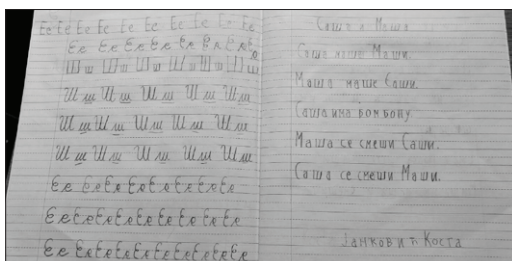 Ее Ее Ее Ее Ее Ее Ее Ее Ее
Ее Ее Ее Ее Ее Ее Ее
Шш Шш Шш Шш Шш Шш
Шш Шш Шш Шш Шш
Шш Шш Шш Шш Шш
Шш Шш Шш Шш Шш
Ее Ее Ее Ее Ее Ее Ее
Ее Ее Ее Ее Ее Ее Ее Ее
Ее Ее Ее Ее Ее Ее Ее Ее
Саша и Маша
Саша маше Маши.
Маша маше Саши.
Саша има бомбону.
Маша се смеши Саши.
Саша се смеши Маши.
Јанковић Коста